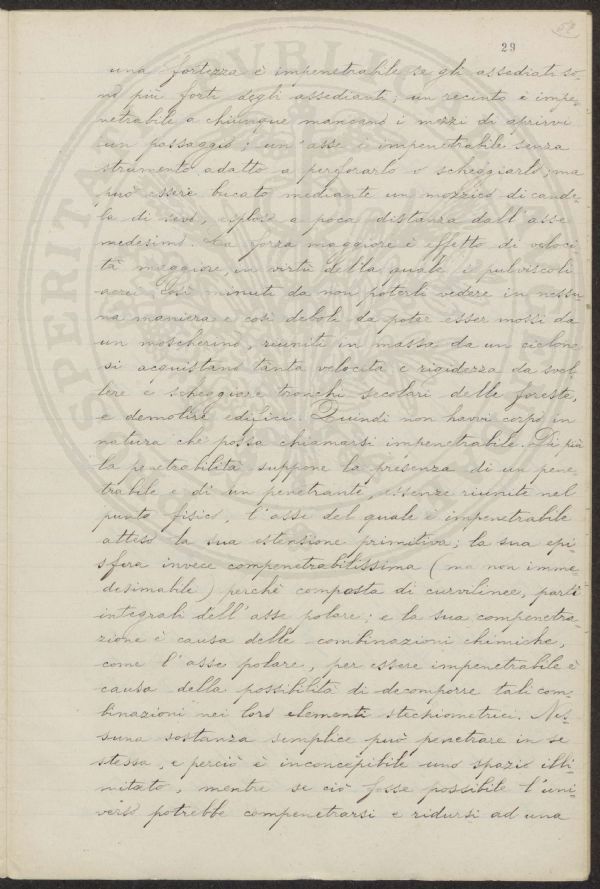 29
una fortezza è impenetrabile se gli assediati so-
no più forti degli assedianti; un recinto è impe-
netrabile a chiunque mancano i mezzi di aprirvi
un passaggio; un'asse è impenetrabile senza
strumento adatto a perforarlo o scheggiarlo; ma
può essere bucato mediante un mozzico di cande-
la di sevo, esploso a poca distanza dall'asse
medesimo. La forza maggiore è effetto di veloci-
tà maggiore, in virtù della quale i pulviscoli
aerei così minuti da non poterli vedere in nessu-
na maniera e così deboli da poter esser mossi da
un moscherino, riuniti in massa da un ciclone
si acquistano tanta velocità e rigidezza da svel-
lere e scheggiare tronchi secolari delle foreste,
e demolire edifici. Quindi non havvi corpo in
natura che possa chiamarsi impenetrabile. Di più
la penetrabilità suppone la presenza di un pene-
trabile e di un penetrante, essenze riunite nel
punto fisico, l'asse del quale è impenetrabile
atteso la sua estensione primitiva; la sua epi-
sfera invece compenetrabilissima (ma non imme-
desimabile) perchè composta di curvilinee, parti
integrali dell'asse polare; e la sua compenetra-
zione è causa delle combinazioni chimiche,
come l'asse polare, per essere impenetrabile è
causa della possibilità di decomporre tali com-
binazioni nei loro elementi stechiometrici. Nes-
suna sostanza semplice può penetrare in se
stessa, e perciò è inconcepibile uno spazio illi-
mitato, mentre se ciò fosse possibile l'uni-
verso potrebbe compenetrarsi e ridursi ad una